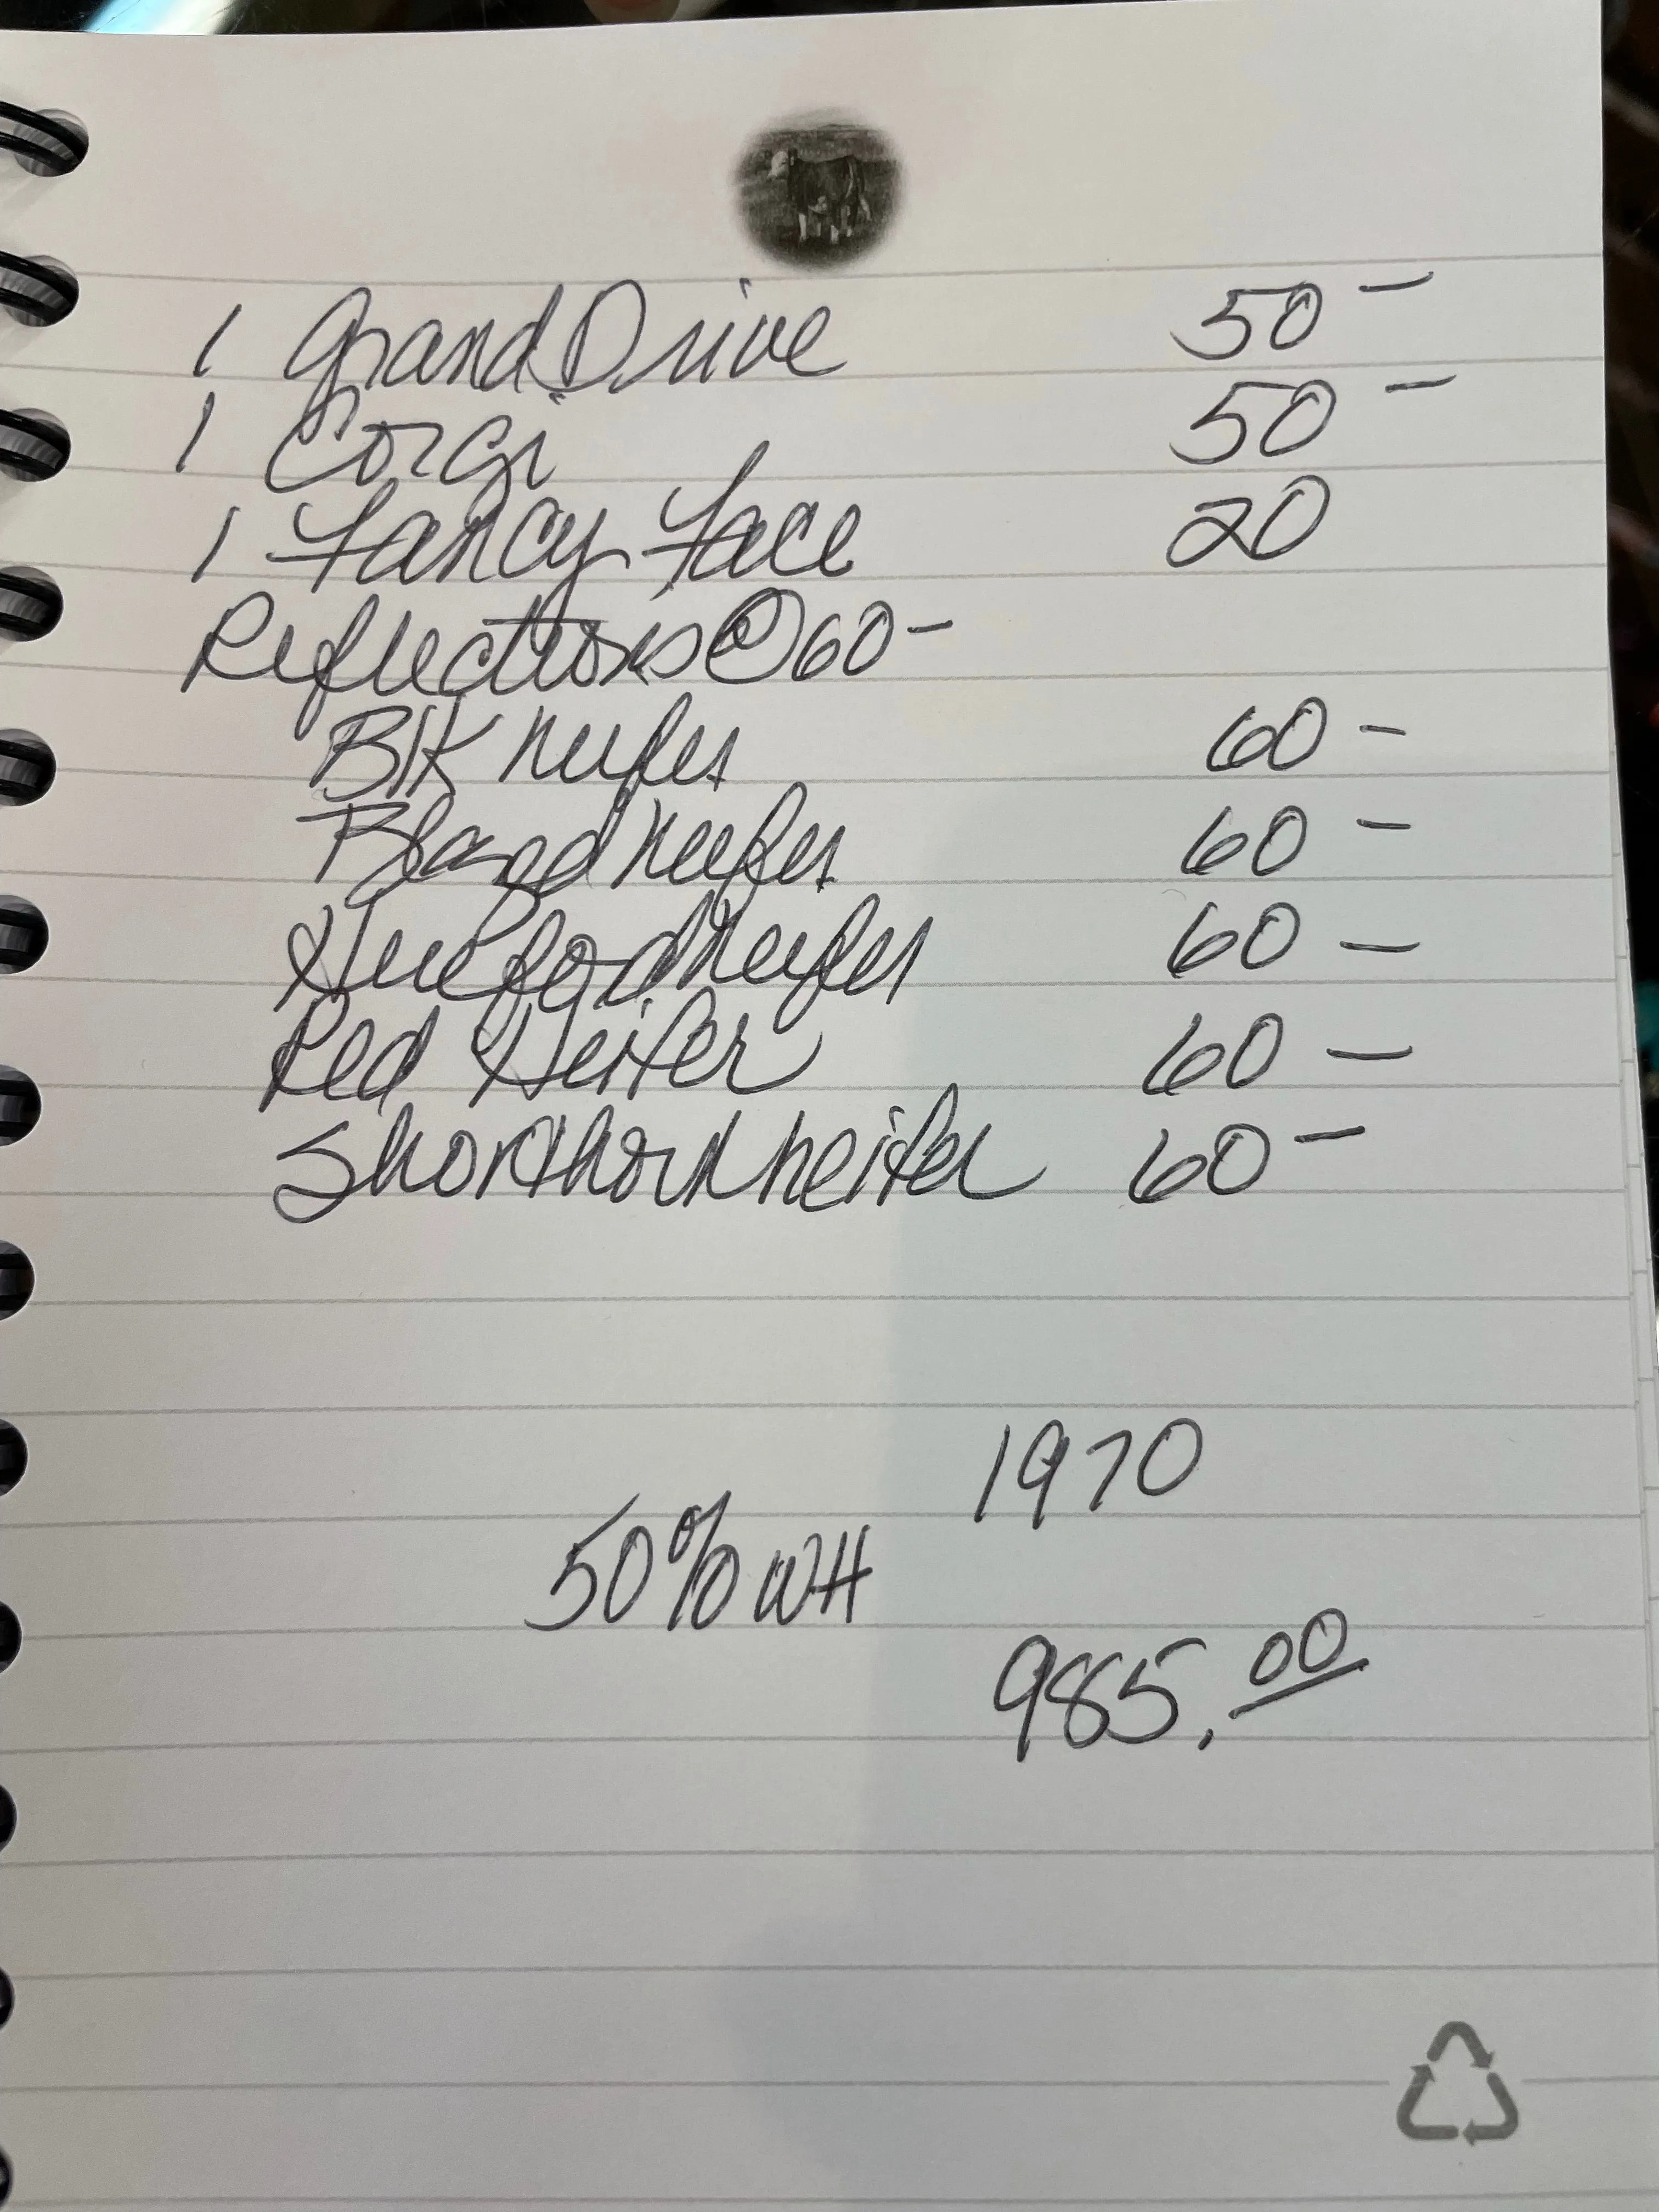 1 Grand Drive 50 -
1 Corgi 50 -
1 Fancy Face 20
Reflections @ 60 -
Blk heifer 60 -
Blazed heifer 60 -
Hereford heifer 60 -
Red Heifer 60 -
Shorthorn heifer 60 -
1970
50% WH
985.00